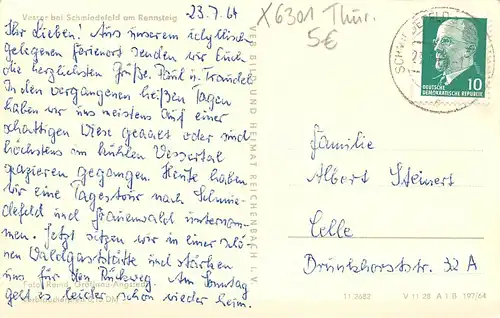 Vesser bei Schmiedefeld am Rennsteig
23.7.64
Ihr Lieben! Aus unserem idyllisch
gelegenen Ferienort senden wir Euch
die herzlichsten Grüße. Paul u. Traudel
In den vergangenen heißen Tagen
haben wir uns meistens auf einer
schattigen Wiese geaalt oder sind
höchstens im kühlen Vessertal
spazieren gegangen. Heute haben
wir eine Tagestour nach Schmie-
defeld und Frauenwald unternom-
men. Jetzt sitzen wir in einer schö-
nen Waldgaststätte und stärken
uns für den Rückweg. Am Sonntag
geht es leider schon wieder heim.
VEB BILD UND HEIMAT REICHENBACH I. V.
X 6301 Thür.
5€
SCHMIEDEFELD
10
DEUTSCHE
DEMOKRATISCHE REPUBLIK
Familie
Albert Steinert
Celle
Brunkhorststr. 32 A
11 2682 V 11 28 A I B 197/64